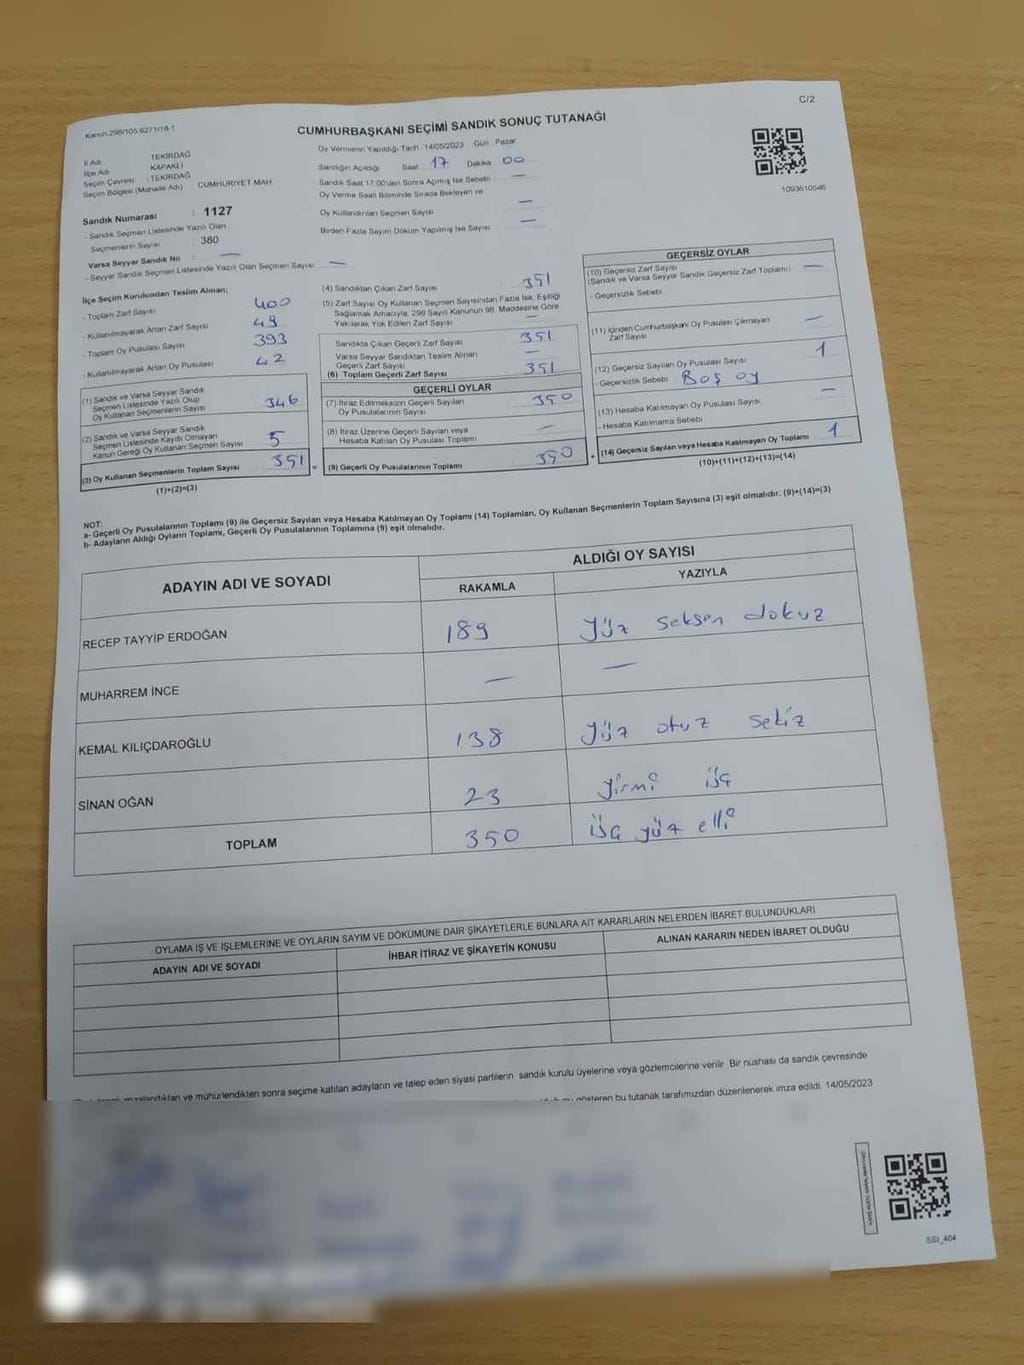 C/2
Kanun.298/105,6271/18-1
CUMHURBAŞKANI SEÇİMİ SANDIK SONUÇ TUTANAĞI
İl Adı TEKİRDAĞ
İlçe Adı KAPAKLI
Seçim Çevresi : TEKİRDAĞ
Seçim Bölgesi (Mahalle Adı) CUMHURİYET MAH.
Oy Vermenin Yapıldığı Tarih : 14/05/2023 Gün : Pazar
Sandığın Açıldığı Saat 17 Dakika 00
Sandık Saat 17:00'den Sonra Açılmış İse Sebebi —
Oy Verme Saati Bitiminde Sırada Bekleyen ve
Oy Kullandırılan Seçmen Sayısı —
Birden Fazla Sayım Döküm Yapılmış İse Sayısı —
1093610546
Sandık Numarası : 1127
- Sandık Seçmen Listesinde Yazılı Olan
Seçmenlerin Sayısı : 380
Varsa Seyyar Sandık No : —
- Seyyar Sandık Seçmen Listesinde Yazılı Olan Seçmen Sayısı —
İlçe Seçim Kurulundan Teslim Alınan;
- Toplam Zarf Sayısı 400
- Kullanılmayarak Artan Zarf Sayısı 49
- Toplam Oy Pusulası Sayısı 393
- Kullanılmayarak Artan Oy Pusulası 42
(1) Sandık ve Varsa Seyyar Sandık
Seçmen Listesinde Yazılı Olup
Oy Kullanan Seçmenlerin Sayısı 346
(2) Sandık ve Varsa Seyyar Sandık
Seçmen Listesinde Kayıtlı Olmayan
Kanun Gereği Oy Kullanan Seçmen Sayısı 5
(3) Oy Kullanan Seçmenlerin Toplam Sayısı 351 =
(1)+(2)=(3)
(4) Sandıktan Çıkan Zarf Sayısı 351
(5) Zarf Sayısı Oy Kullanan Seçmen Sayısından Fazla İse, Eşitliği
Sağlamak Amacıyla; 298 Sayılı Kanunun 98. Maddesine Göre
Yakılarak Yok Edilen Zarf Sayısı —
Sandıkta Çıkan Geçerli Zarf Sayısı 351
Varsa Seyyar Sandıktan Teslim Alınan
Geçerli Zarf Sayısı —
(6) Toplam Geçerli Zarf Sayısı 351
GEÇERLİ OYLAR
(7) İtiraz Edilmeksizin Geçerli Sayılan
Oy Pusulalarının Sayısı 350
(8) İtiraz Üzerine Geçerli Sayılan veya
Hesaba Katılan Oy Pusulası Toplamı —
(9) Geçerli Oy Pusulalarının Toplamı 350 +
GEÇERSİZ OYLAR
(10) Geçersiz Zarf Sayısı
(Sandık ve Varsa Seyyar Sandık Geçersiz Zarf Toplamı) —
- Geçersizlik Sebebi
(11) İçinden Cumhurbaşkanı Oy Pusulası Çıkmayan
Zarf Sayısı —
(12) Geçersiz Sayılan Oy Pusulası Sayısı 1
- Geçersizlik Sebebi Boş oy
(13) Hesaba Katılmayan Oy Pusulası Sayısı —
- Hesaba Katılmama Sebebi
(14) Geçersiz Sayılan veya Hesaba Katılmayan Oy Toplamı 1
(10)+(11)+(12)+(13)=(14)
NOT:
a- Geçerli Oy Pusulalarının Toplamı (9) ile Geçersiz Sayılan veya Hesaba Katılmayan Oy Toplamı (14) Toplamları, Oy Kullanan Seçmenlerin Toplam Sayısına (3) eşit olmalıdır. (9)+(14)=(3)
b- Adayların Aldığı Oyların Toplamı, Geçerli Oy Pusulalarının Toplamına (9) eşit olmalıdır.
ADAYIN ADI VE SOYADI
ALDIĞI OY SAYISI
RAKAMLA YAZIYLA
RECEP TAYYİP ERDOĞAN 189 Yüz seksen dokuz
MUHARREM İNCE — —
KEMAL KILIÇDAROĞLU 138 Yüz otuz sekiz
SİNAN OĞAN 23 Yirmi üç
TOPLAM 350 üç yüz elli
OYLAMA İŞ VE İŞLEMLERİNE VE OYLARIN SAYIM VE DÖKÜMÜNE DAİR ŞİKAYETLERLE BUNLARA AİT KARARLARIN NELERDEN İBARET BULUNDUKLARI
ADAYIN ADI VE SOYADI İHBAR İTİRAZ VE ŞİKAYETİN KONUSU ALINAN KARARIN NEDEN İBARET OLDUĞU
imzalandıktan ve mühürlendikten sonra seçime katılan adayların ve talep eden siyasi partilerin sandık kurulu üyelerine veya gözlemcilerine verilir. Bir nüshası da sandık çevresinde
gösteren bu tutanak tarafımızdan düzenlenerek imza edildi. 14/05/2023
SSI_404